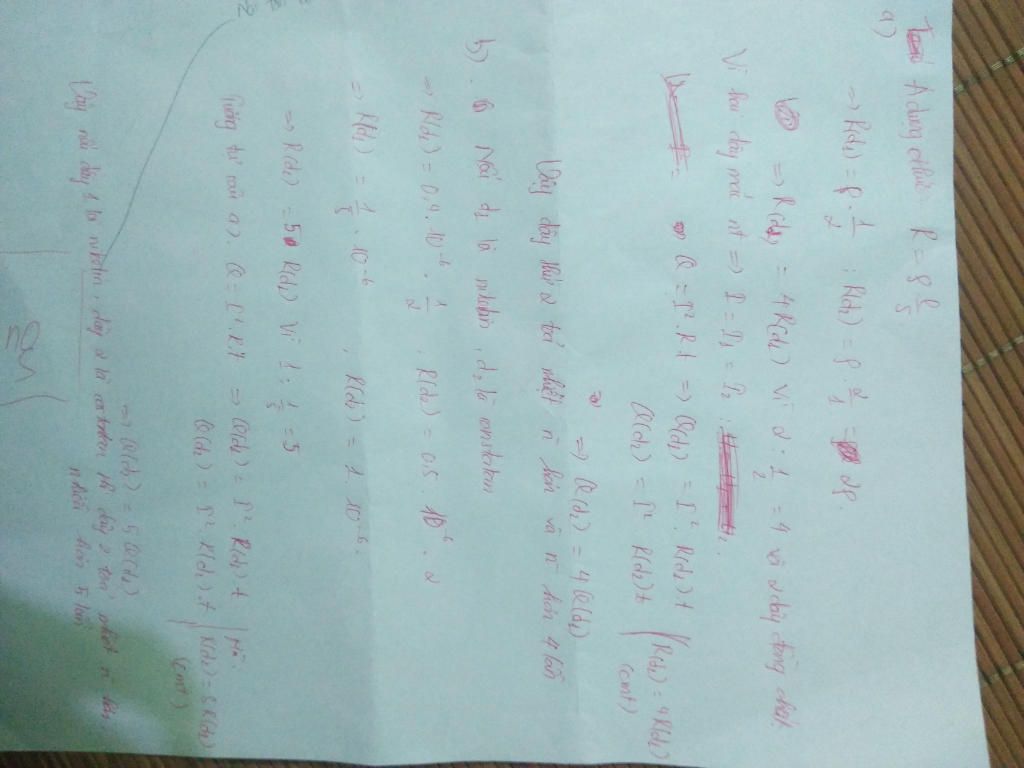 a) Áp dụng cthức R = ρ l/S
=> R(d1) = ρ . 1/2 ; R(d2) = ρ . 2/1 = 2ρ.
=> R(d2) = 4R(d1) Vì 2 : 1/2 = 4 và 2 dây đồng chất
Vì hai dây mắc nt => I = I1 = I2
Q = I².R t => Q(d1) = I². R(d1) t
Q(d2) = I² R(d2) t (R(d2) = 4R(d1)
(cmt)
=> Q(d2) = 4Q(d1)
Vậy dây thứ 2 toả nhiệt n` hơn và n` hơn 4 lần
b). Nối d1 là nikelin, d2 là constantan
=> R(d1) = 0,4.10^-6 . 1/2 , R(d2) = 0,5 . 10^-6 . 2
=> R(d1) = 1/5 . 10^-6 , R(d2) = 1 . 10^-6.
=> R(d2) = 5 R(d1) Vì 1 : 1/5 = 5
Tương tự câu a). Q = I².R.t => Q(d1) = I². R(d1) t
Q(d2) = I². R(d2).t R(d2) = 5R(d1)
(cmt)
=> Q(d2) = 5Q(d1)
Vậy nếu dây 1 là nikelin, dây 2 là constantan thì dây 2 toả nhiệt n` hơn
n` hơn 5 lần